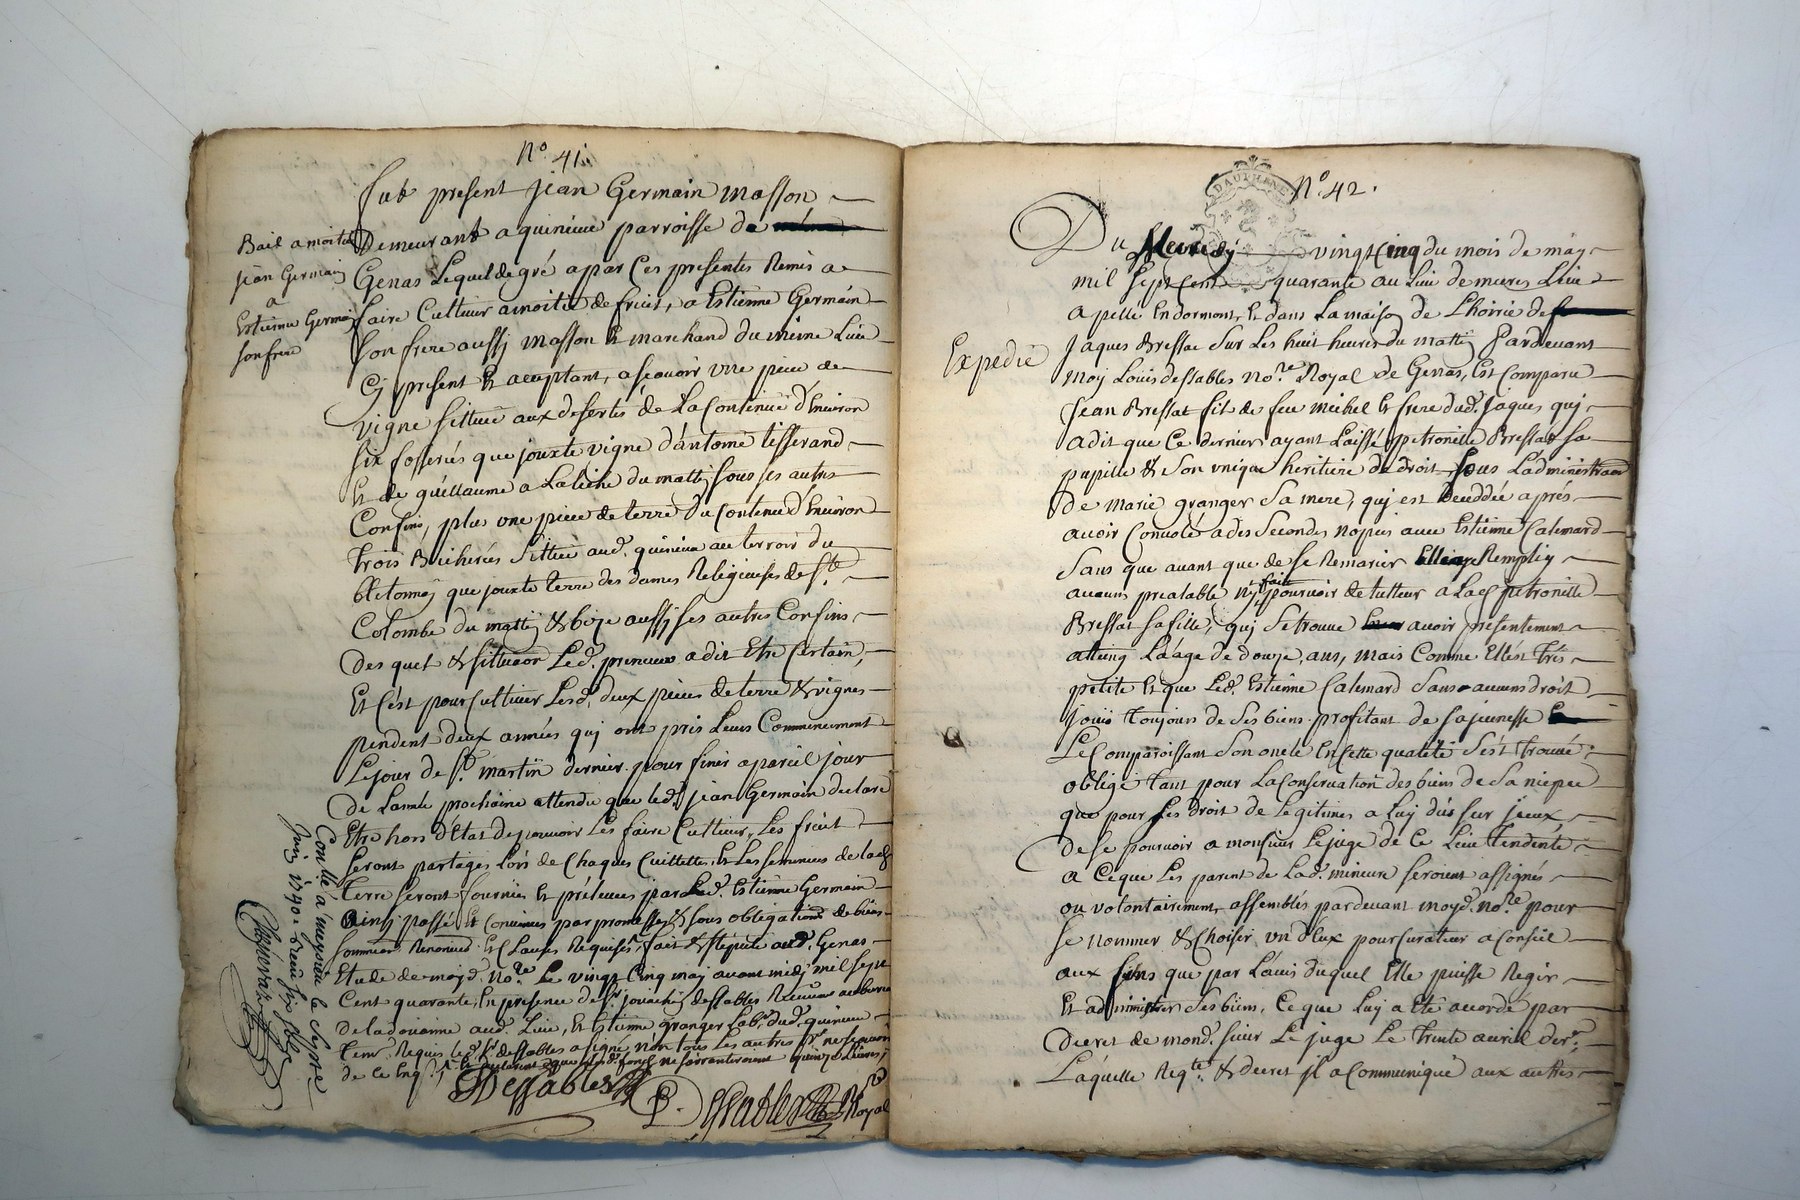 N° 41.
fut present jean Germain masson
Demeurant a quinieu parroisse de
Genas Lequel de gré a par Ces presentes Remis a
faire Cultiver a moitié de fruit, a Estienne Germain
son frere aussy masson et marchand du meme Lieu
Cy present et acceptant, a scavoir une piece de
vigne sittuée aux desertes de La Contenue d'Environ
six fosserées que jouxte vigne d'antoine tisserand
Et de guillaume a La biche du matin sous ses autres
Confins, plus une piece de terre du Contenu d'Environ
trois Bicherées sittuée aud. quinieu au terroir du
que jouxte terre des dames Religieuses de Ste
Colombe du matin & bize aussy ses autres Confins
Des quel & sittuaon Led. preneur a dit Etre Certain,
Et C'ést pour Cultiver Lesd. deux pieces de terre & vignes
pendent deux années quj ont pris Leurs Commencement
Lejour de St martin dernier pour finir a pareil jour
de Lannée prochaine attendu que led. jean Germain declare
Etre hors d'Etat de pouvoir Les faire Cultiver, Les fruit
seront partagés Lors de Chaques Cuillette, et Les semences de lad.
terre seront fournies et prélevées par Led. Estienne Germain
Ainsy passé Et Convenus par promesses & sous obligations de biens
soumis. Renonces. et Clauses Requises, fait & Recité aud. Genas
Etude de moyd. nore Le vingt Cinq may avant midj mil sept
Cent quarante, En presence de sr. joachin destables Receveur au bureau
de la douanne aud. Lieu, et Estienne granger Labr. dud. quinieu
tem. Requis led. sr. destables a signé non tous Les autres pr. ne scavoir
de ce Enq.
Destables
Destables no Royal
Bail a moitié
jean Germain
a
Estienne Germain
son frere
Con.lle a meyrieu le septe
Juin 1740. Recu six sols
N° 42.
DAUPHINE
Du Mercredy vingt Cinq du mois de may
mil sept Cent quarante au Lieu de meures Lieu
apellé En dormont, & dans La maison de L'hoirie de
Jaques Bressat sur Les huit heures du matin Pardevant
moy Loüis destables nore. Royal de Genas, Est Comparu
Jean Bressat fils de feu michel et frere dud. Jaques quj
a dit que Ce dernier ayant Laissé petronille Bressat sa
pupille & son unique heritiere de droit sous L'administraon
De marie granger sa mere, quj est deceddée aprés
avoir Convolé a des secondes nopces avec Estienne Calemard
sans que avant que de se Remarier Elle aye Remplit
aucuns prealable ny fait pourvoir de tutteur a Lad. petronille
Bressat sa fille, quj se trouve avoir presentement
atteint L'aâge de douze, ans, mais Comme Elle est trés
petite Et que Led. Estienne Calemard sans aucuns droit
Joüi toujours de ses biens profitant de sa jeunesse
Le Comparoissant son oncle En cette qualité s'ést trouvé
obligé tant pour La Conservation des biens de sa niepce
que pour Les droit de Legitimes a Luy dûs sur jceux,
de se pourvoir a monsieur Le juge de Ce Lieu tendente
a Ceque Les parent de Lad. mineure seroient assignés
ou volontairement assemblés pardevant moyd. nore. pour
se nommer & Choisir un d'Eux pour Curateur a Conseil
aux fins que par L'avis duquel Elle puisse Regir
Et administrer ses biens, Ce que Luy a Eté accordé par
Decret de mond. sieur Le juge Le trente avril der.,
Laquelle Reqte. & decret jl a Communiqué aux autres
Expedié